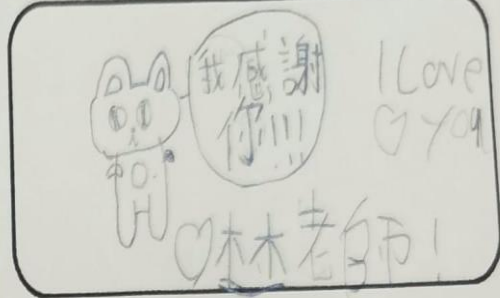 我感謝
你!!!
I Love
♡ you
♡林老師!